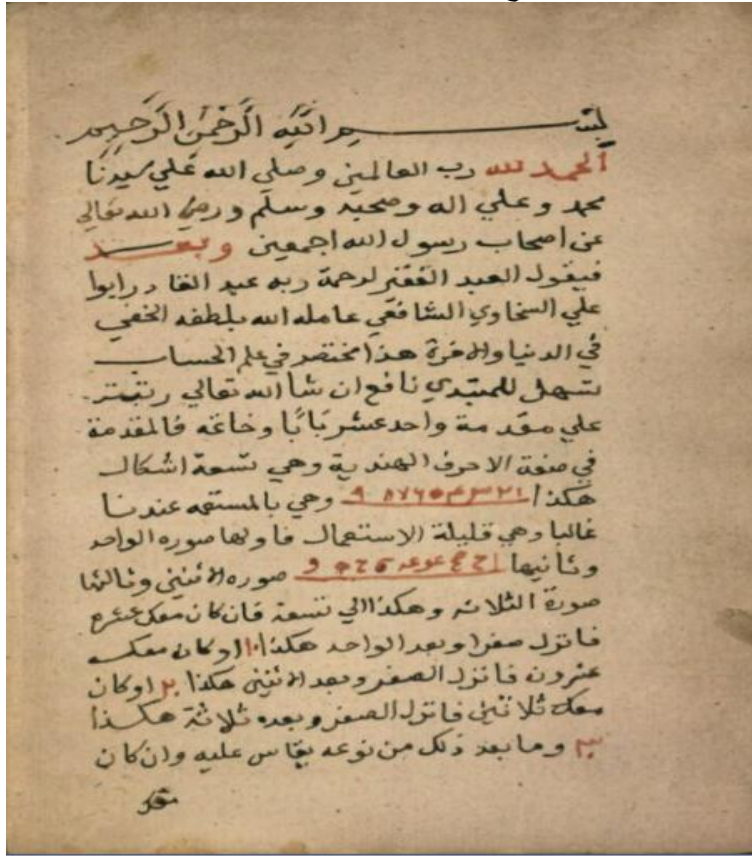 بسم الله الرحمن الرحيم
الحمد لله رب العالمين وصلي الله علي سيدنا
محمد وعلي اله وصحبه وسلم ورضي الله تعالي
عن اصحاب رسول الله اجمعين وبعد
فيقول العبد الفقير لرحمة ربه عبد القادر ابوا
علي السخاوي الشافعي عامله الله بلطفه الخفي
في الدنيا والاخرة هذا مختصر في علم الحساب
تسهل للمبتدي نافع ان شا الله تعالي رتبته
علي مقدمة واحد عشر بابا وخاتمه فالمقدمة
في صفة الاحرف الهندية وهي تسعة اشكال
هكذا وهي عندنا
غالبا وهي قليلة الاستعمال فاولها صوره الواحد
وثانيها صوره الاثنين وثالثها
صورة الثلاثه وهكذا الي تسعة فان كان معك عشره
فانزل صفرا وبعد الواحد هكذا ١٠ او كان معك
عشرون فانزل الصفر وبعد الاثنين هكذا ٢٠ او كان
معك ثلاثين فانزل الصفر وبعده ثلاثة هكذا
٣٠ وما بعد ذلك من نوعه يقاس عليه وان كان
معك